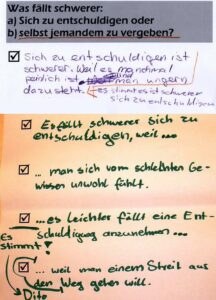 Was fällt schwerer:
a) Sich zu entschuldigen oder
b) selbst jemandem zu vergeben?
Sich zu entschuldigen ist
schwerer. Weil es manchmal
peinlich ist und man ungern
dazusteht. Es stimmt es ist schwerer
sich zu entschuldigen
Es fällt schwerer sich zu
entschuldigen, weil ...
... man sich vom schlechten Ge-
wissen unwohl fühlt.
... es leichter fällt eine Ent-
schuldigung anzunehmen ...
Es
stimmt!
... weil man einem Streit aus
den Weg gehen will.
Dito